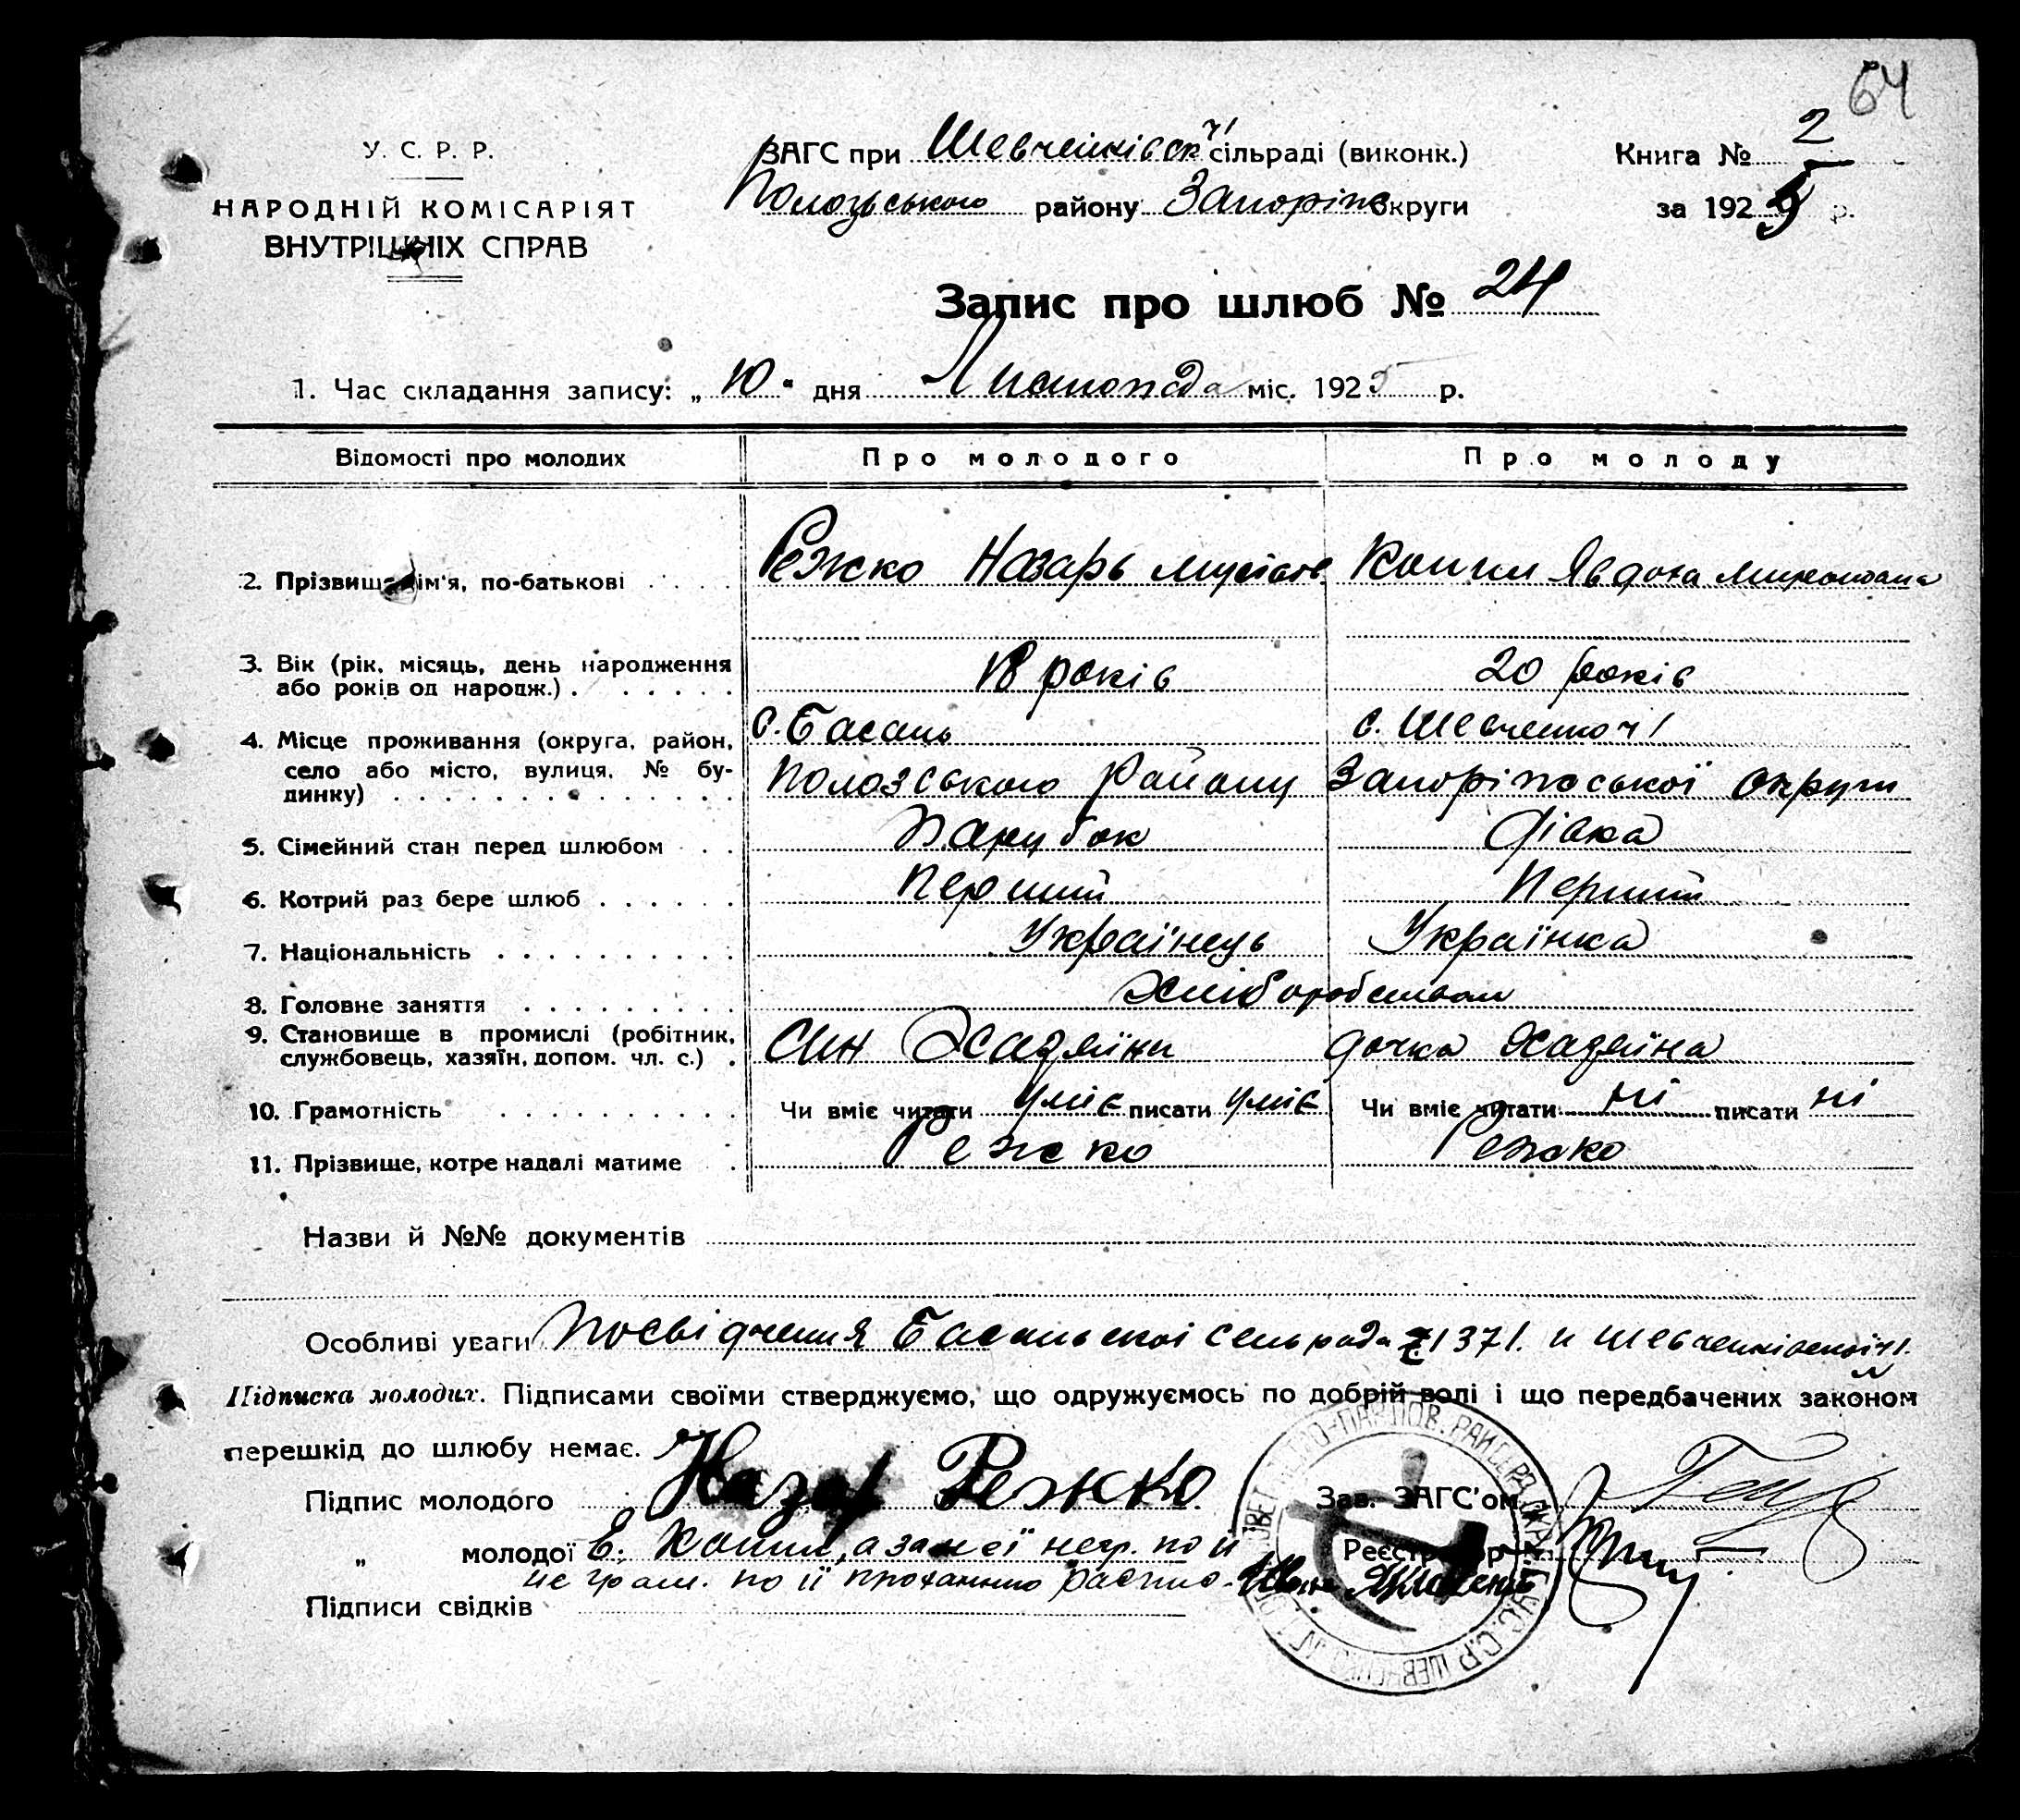 64
У. С. Р. Р.
НАРОДНІЙ КОМІСАРІЯТ
ВНУТРІШНІХ СПРАВ
ЗАГС при Шевченківск ч1 сільраді (виконк.)
Пологьського району Запоріж округи
Книга № 2
за 1925 р.
Запис про шлюб № 24
1. Час складання запису: „ 10 " дня Листопада міс. 1925 р.
Відомості про молодих Про молодого Про молоду
2. Прізвище, ім'я, по-батькові Режко Назарь Мусіев Копил Явдоха
3. Вік (рік, місяць, день народження або років од народж.) 18 років 20 років
4. Місце проживання (округа, район, село або місто, вулиця, № будинку) с. Басань с. Шевченко ч1
Полозського Району Запоріжської округи
5. Сімейний стан перед шлюбом Парубок дівка
6. Котрий раз бере шлюб Перший Перший
7. Національність Українець Українка
8. Головне заняття Хліборобством
9. Становище в промислі (робітник, службовець, хазяїн, допом. чл. с.) Син Хазяїна дочка Хазяїна
10. Грамотність Чи вміє читати уміє писати уміє Чи вміє читати ні писати ні
11. Прізвище, котре надалі матиме Режко Режко
Назви й №№ документів
Особливі уваги Посвідчення Басанської сельрада 1371. и Шевченківської ч1.
Підписка молодих. Підписами своїми стверджуємо, що одружуємось по добрій волі і що передбачених законом
перешкід до шлюбу немає.
Підпис молодого Назар Режко Зав. ЗАГС'ом
„ молодої Е. Копил, а за неї негр. по її Реєстратор
не грам. по її проханню распис.
Підписи свідків